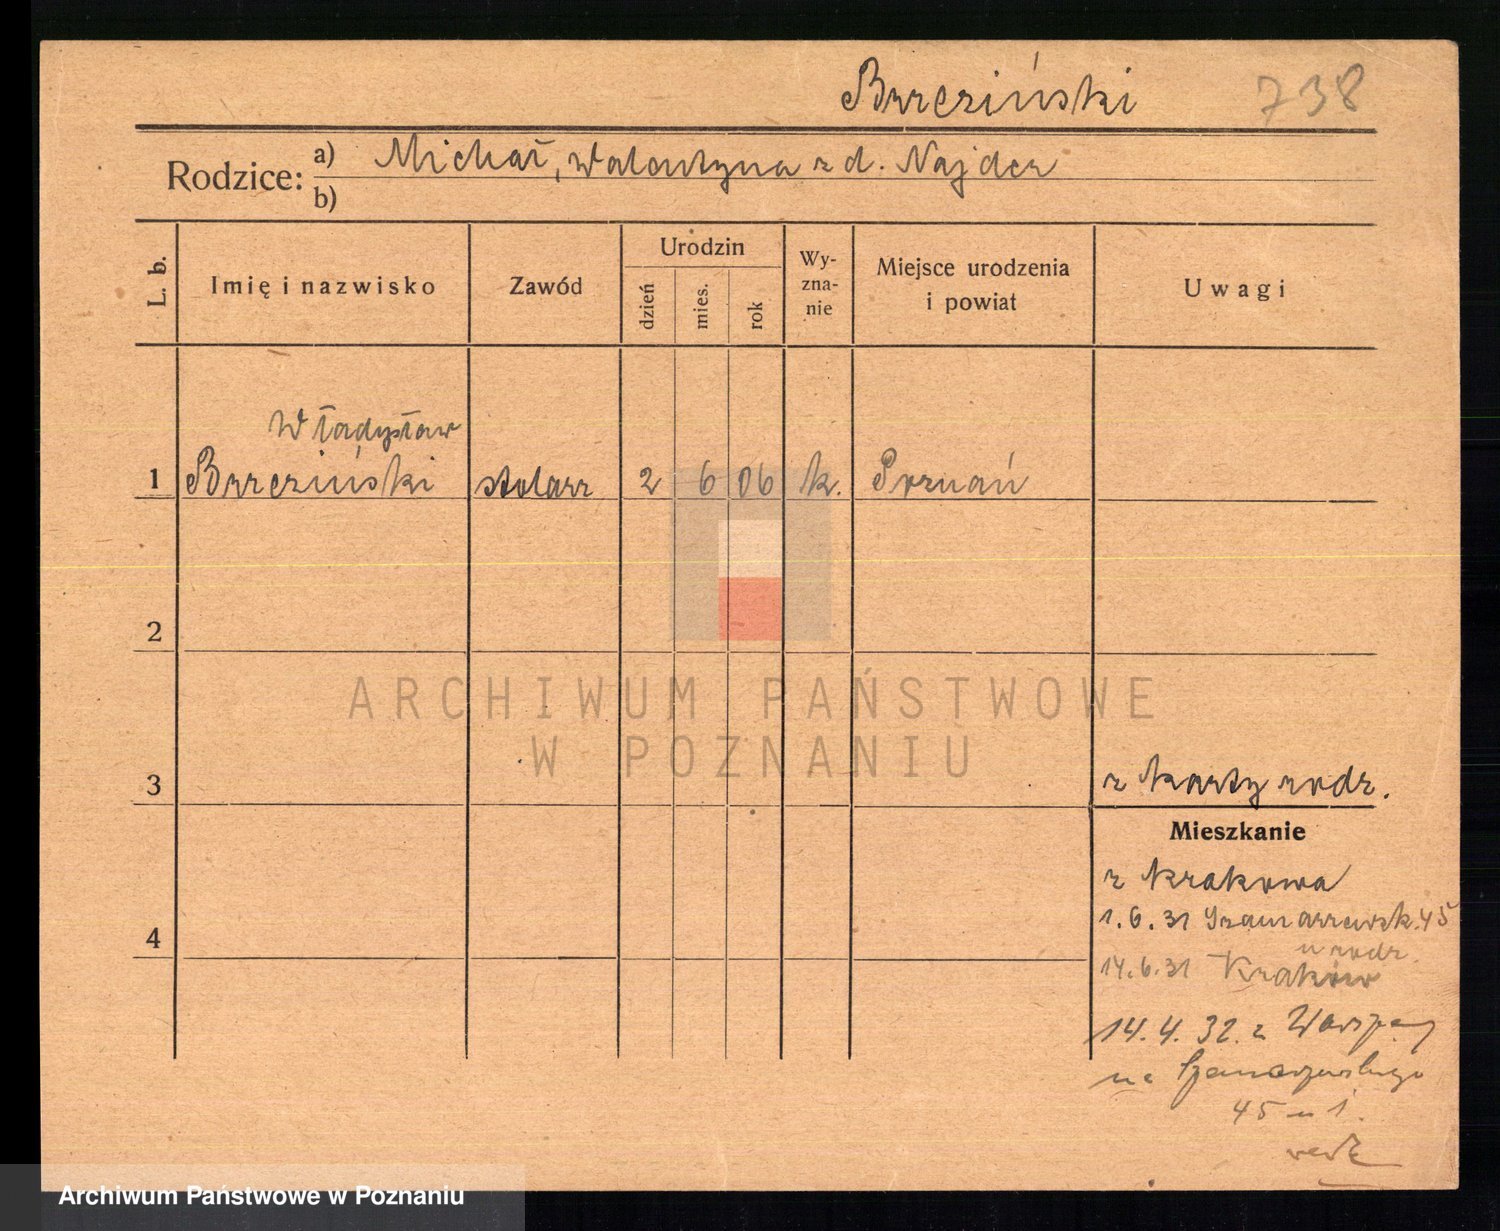 Brzeziński 738
Rodzice: a) Michał, Walentyna z d. Najder
b)
L. b. Imię i nazwisko Zawód Urodzin dzień mies. rok Wy-zna-nie Miejsce urodzenia i powiat Uwagi
Władysław
1 Brzeziński stolarz 2 6 06 k. Poznań
2
ARCHIWUM PAŃSTWOWE
W POZNANIU
3 z karty rodz.
Mieszkanie
z Krakowa
1.6.31 Szamarzewsk. 45
4 u rodz.
14.6.31 Kraków
14.4.32. z Warszawy
na Szamarzewskiego
45 m 1.
Archiwum Państwowe w Poznaniu